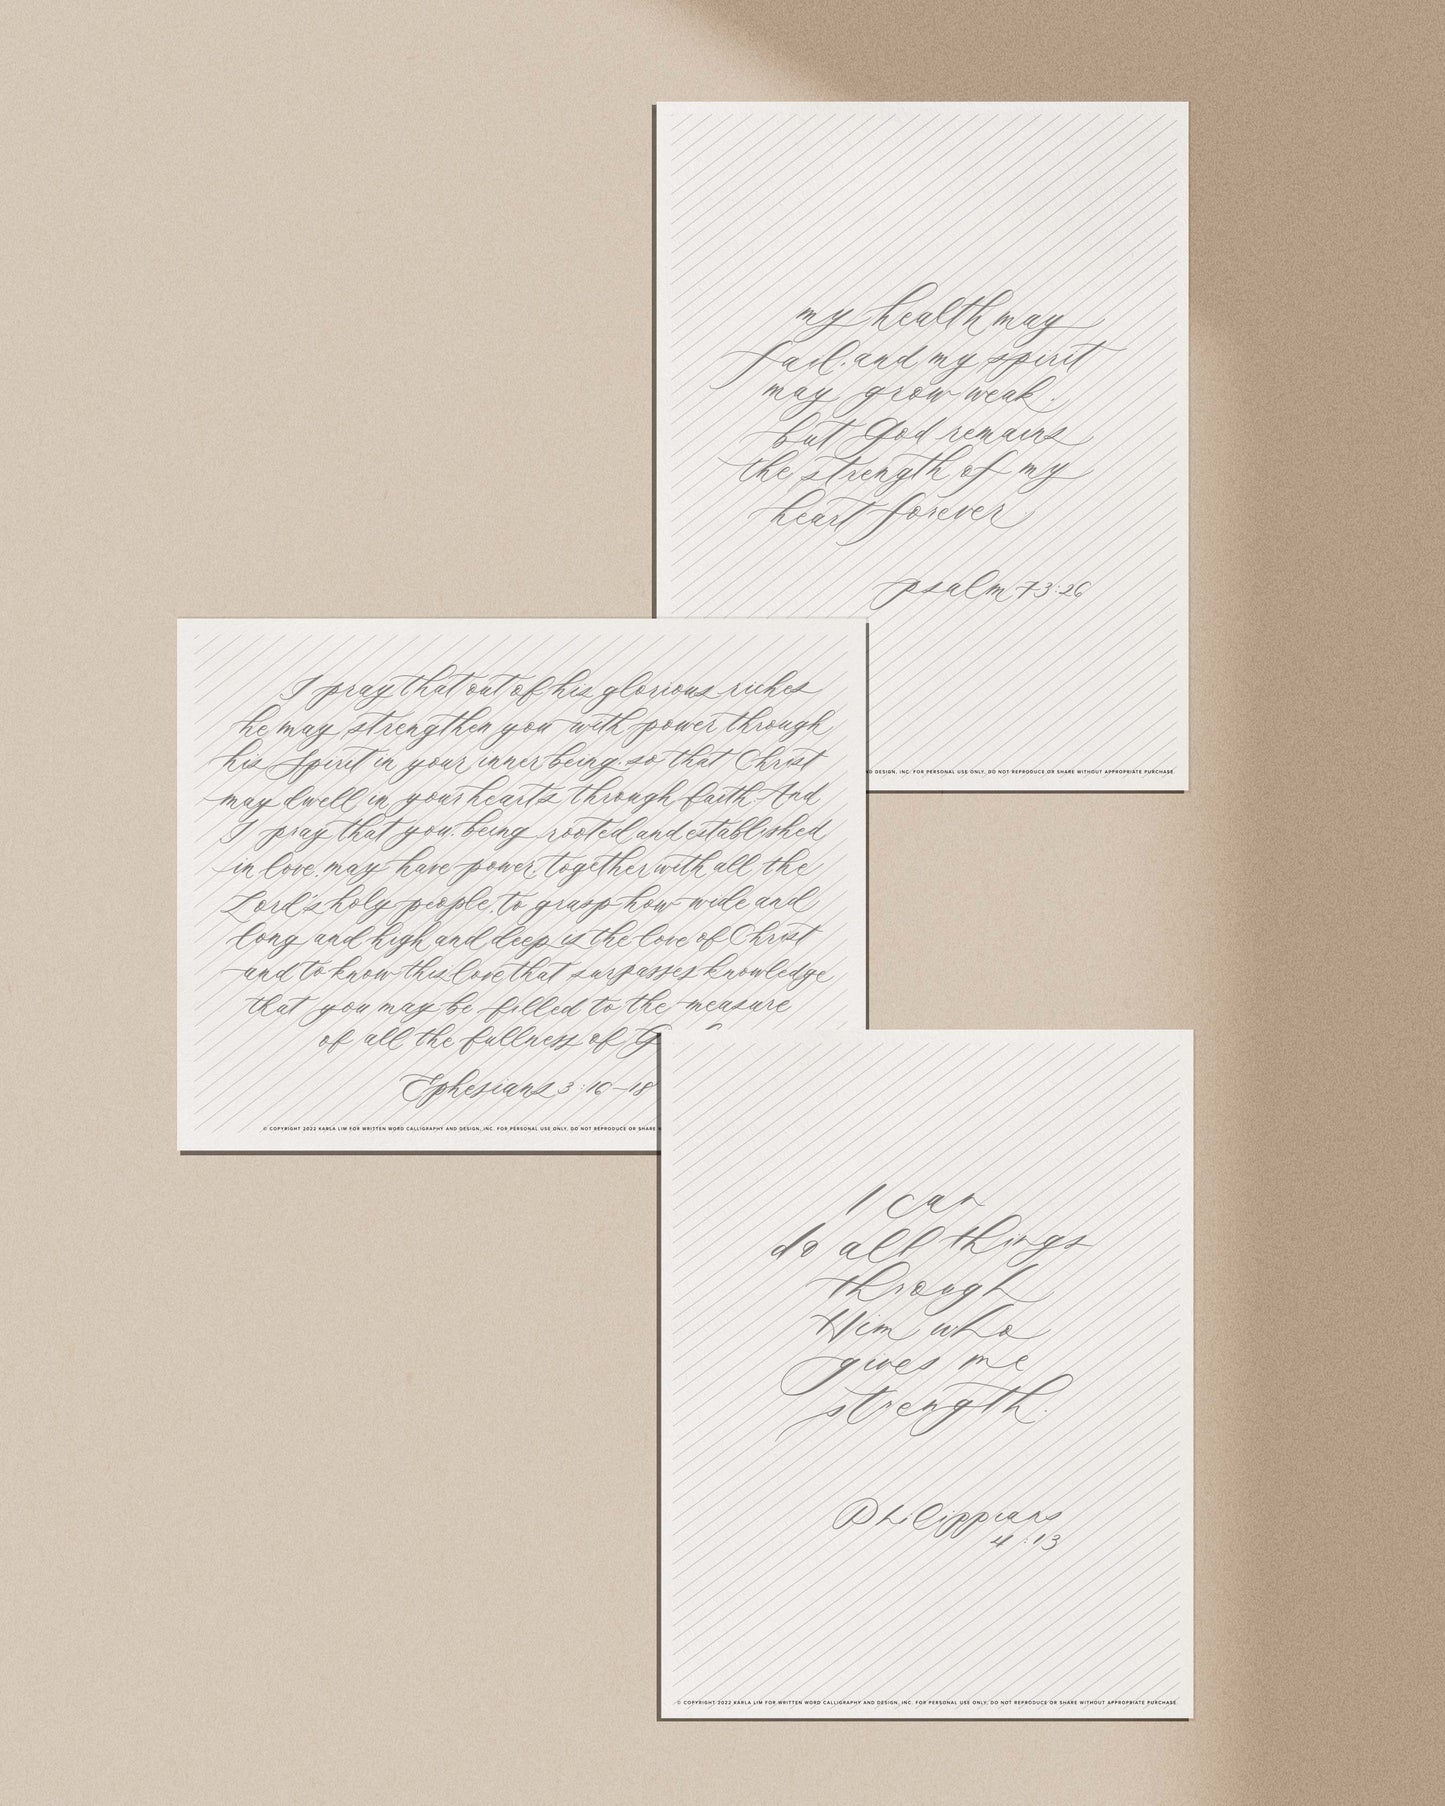 my health may
fail, and my spirit
may grow weak,
but God remains
the strength of my
heart forever
psalm 73:26
D DESIGN, INC. FOR PERSONAL USE ONLY, DO NOT REPRODUCE OR SHARE WITHOUT APPROPRIATE PURCHASE.
I pray that out of his glorious riches
he may strengthen you with power through
his Spirit in your inner being, so that Christ
may dwell in your hearts through faith. And
I pray that you, being rooted and established
in love, may have power, together with all the
Lord's holy people, to grasp how wide and
long and high and deep is the love of Christ
and to know this love that surpasses knowledge
that you may be filled to the measure
of all the fullness of G
Ephesians 3:16-18
© COPYRIGHT 2022 KARLA LIM FOR WRITTEN WORD CALLIGRAPHY AND DESIGN, INC. FOR PERSONAL USE ONLY, DO NOT REPRODUCE OR SHARE
I can
do all things
through
Him who
gives me
strength.
Philippians
4:13
© COPYRIGHT 2022 KARLA LIM FOR WRITTEN WORD CALLIGRAPHY AND DESIGN, INC. FOR PERSONAL USE ONLY, DO NOT REPRODUCE OR SHARE WITHOUT APPROPRIATE PURCHASE.